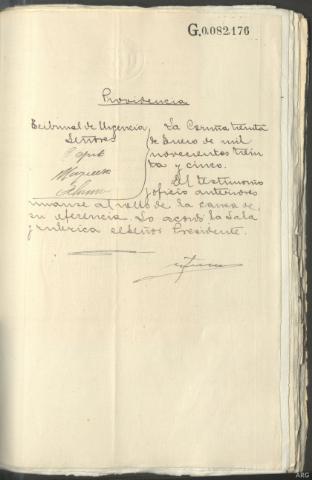 G.0.082.176
Providencia
Tribunal de Urgencia
Señores
La Coruña treinta
de Enero de mil
novecientos trein
ta y cinco.
El testimonio
y oficio anteriores
unanse al rollo de la causa de
su referencia. Lo acordó la Sala
y rubrica el Señor Presidente.
ARG